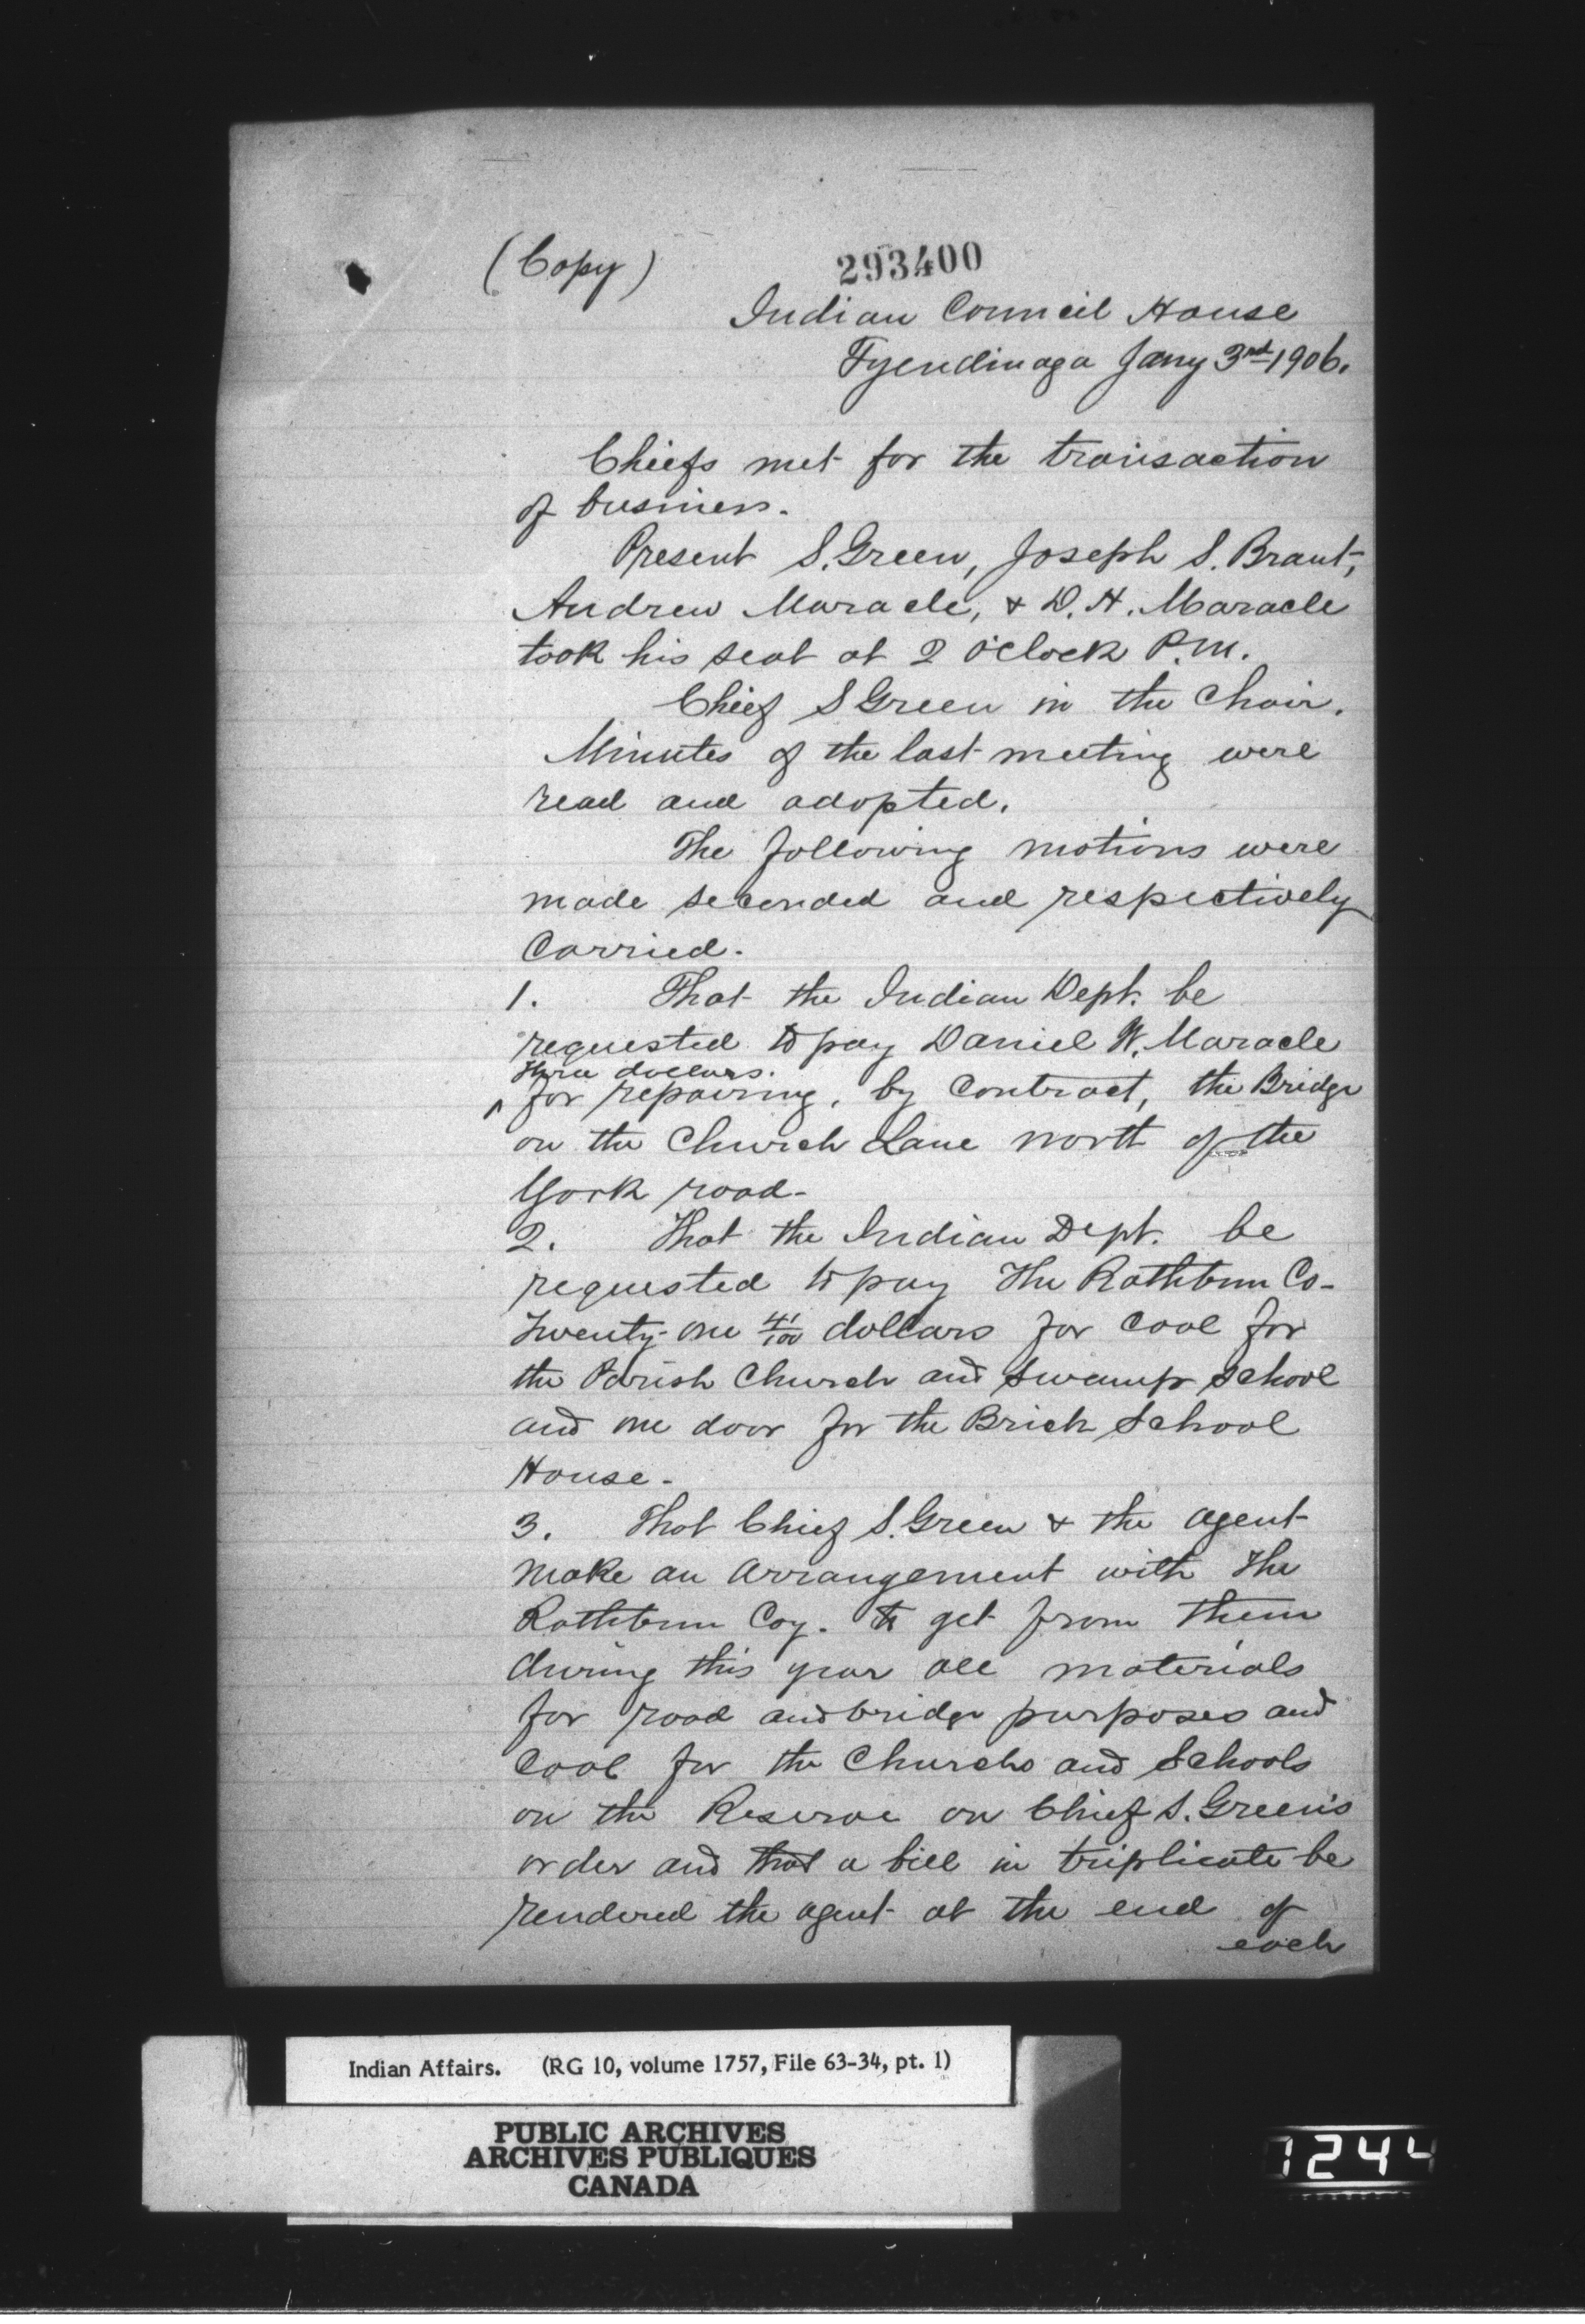 (Copy)
293400
Indian Council House
Tyendinaga Jany 3rd 1906.
Chiefs met for the transaction
of business.
Present S. Green, Joseph S. Brant,
Andrew Maracle, & D. H. Maracle
took his seat at 2 o'clock P.M.
Chief S Green in the Chair.
Minutes of the last meeting were
read and adopted.
The following motions were
made seconded and respectively
Carried.
1. That the Indian Dept. be
requested to pay Daniel W. Maracle
three dollars.
^ for repairing, by Contract, the Bridge
on the Church Lane north of the
York road-
2. That the Indian Dept. be
requested to pay The Rathbun Co-
Twenty-one 41/100 dollars for Coal for
the Parish Church and Swamp School
and one door for the Brick School
House-
3. That Chief S. Green & the agent
make an arrangement with The
Rathbun Coy. to get from them
during this year all materials
for road and bridge purposes and
Coal for the Churchs and Schools
on the Reserve on Chief S. Green's
order and that a bill in triplicate be
rendered the agent at the end of
each
Indian Affairs. (RG 10, volume 1757, File 63-34, pt. 1)
PUBLIC ARCHIVES
ARCHIVES PUBLIQUES
CANADA
1244